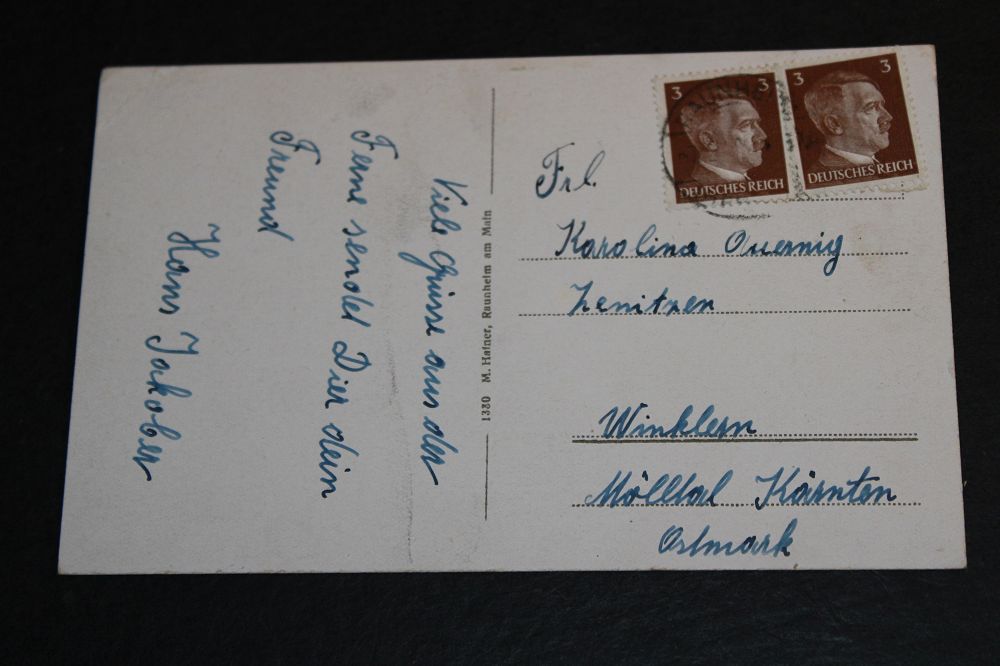 Viele Grüsse aus der
Ferne sendet Dier dein
Freund
Hans Jakober
1380 M. Hafner, Raunheim am Main
3 3
DEUTSCHES REICH
3
DEUTSCHES REICH
RAUNHEI
Frl.
Karolina Quernig
Zenitzen
Winklern
Mölltal Kärnten
Ostmark